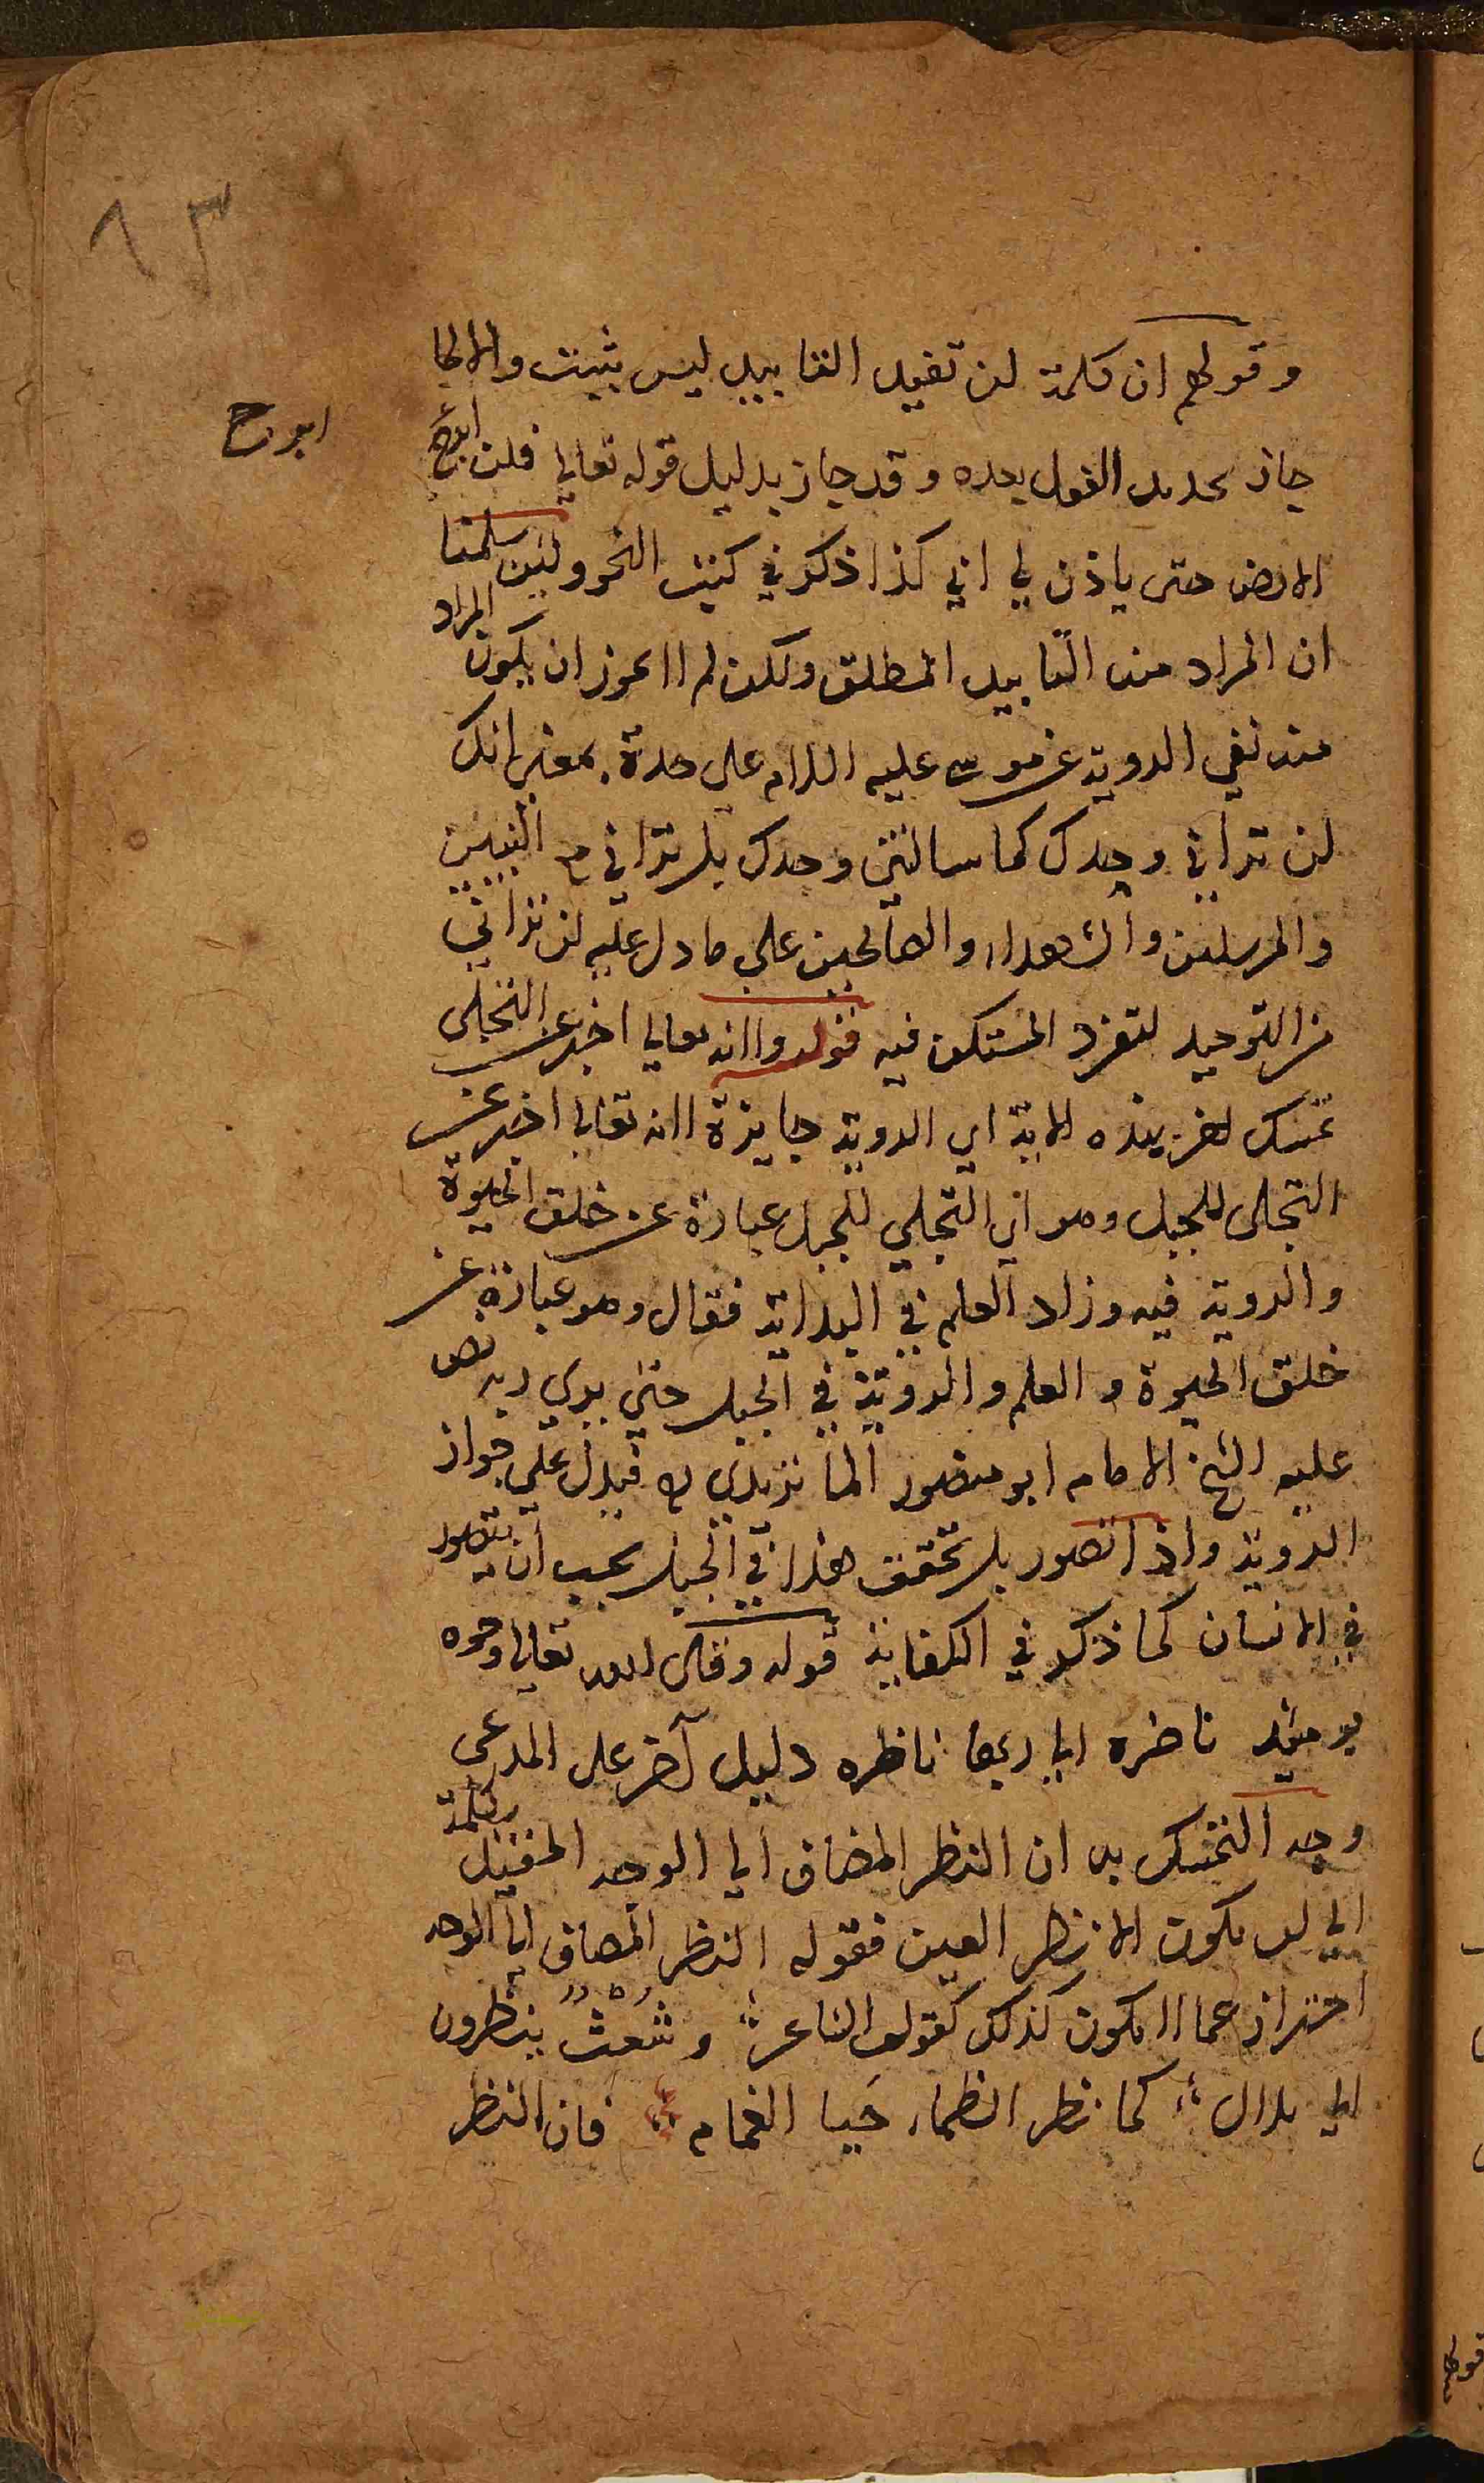 ٦٣
وقولهم ان كلمة لن تفيد التابيد ليس بثبت والا لما
جاز تحديد الفعل بعده وقد جاز بدليل قوله تعالى فلن ابرح
ابرح
الارض حتى ياذن لي ابي كذا ذكر في كتب النحو ولئن سلمنا
ان المراد منه التابيد المطلق ولكن لم لا يجوز ان يكون المراد
منه نفي الروية عن موسى عليه السلام على حدة بمعنى انك
لن تراني وحدك كما سالتني وحدك بل تراني مع النبيين
والمرسلين والشهداء والصالحين على ما دل عليه لن تراني
من التوحيد لتفرد المستكن فيه قوله ولانه تعالى اخبر عن التجلي
تمسك اخر بهذه الاية اي الروية جايزة لانه تعالى اخبر عن
التجلي للجبل وهو اي التجلي للجبل عبارة عن خلق الحيوة
والروية فيه وزاد العلم في البداية فقال وهو عبارة عن
خلق الحيوة والعلم والروية في الجبل حتى يري ربه نص
عليه الشيخ الامام ابو منصور الماتريدي ره فيدل على جواز
الروية واذا تصور بل تحقق هذا في الجبل يجب ان يتصور
في الانسان كما ذكر في الكفاية قوله وقال الله تعالى وجوه
يومئذ ناضره الى ربها ناظره دليل آخر على المدعى
وجه التمسك به ان النظر المضاف الى الوجه المقيد بكلمة
الي لا يكون الا نظر العين فقوله النظر المضاف الى الوجه
احتراز عما لا يكون كذلك كقول الشاعر وشُعْثٌ ينظرون
الي بلال كما نظر الظماء حَيا الغمام فان النظر